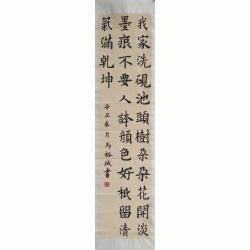 我家洗硯池頭樹朵朵花開淡
墨痕不要人誇顔色好秖留清
氣滿乾坤
辛丑春月馬裕城書